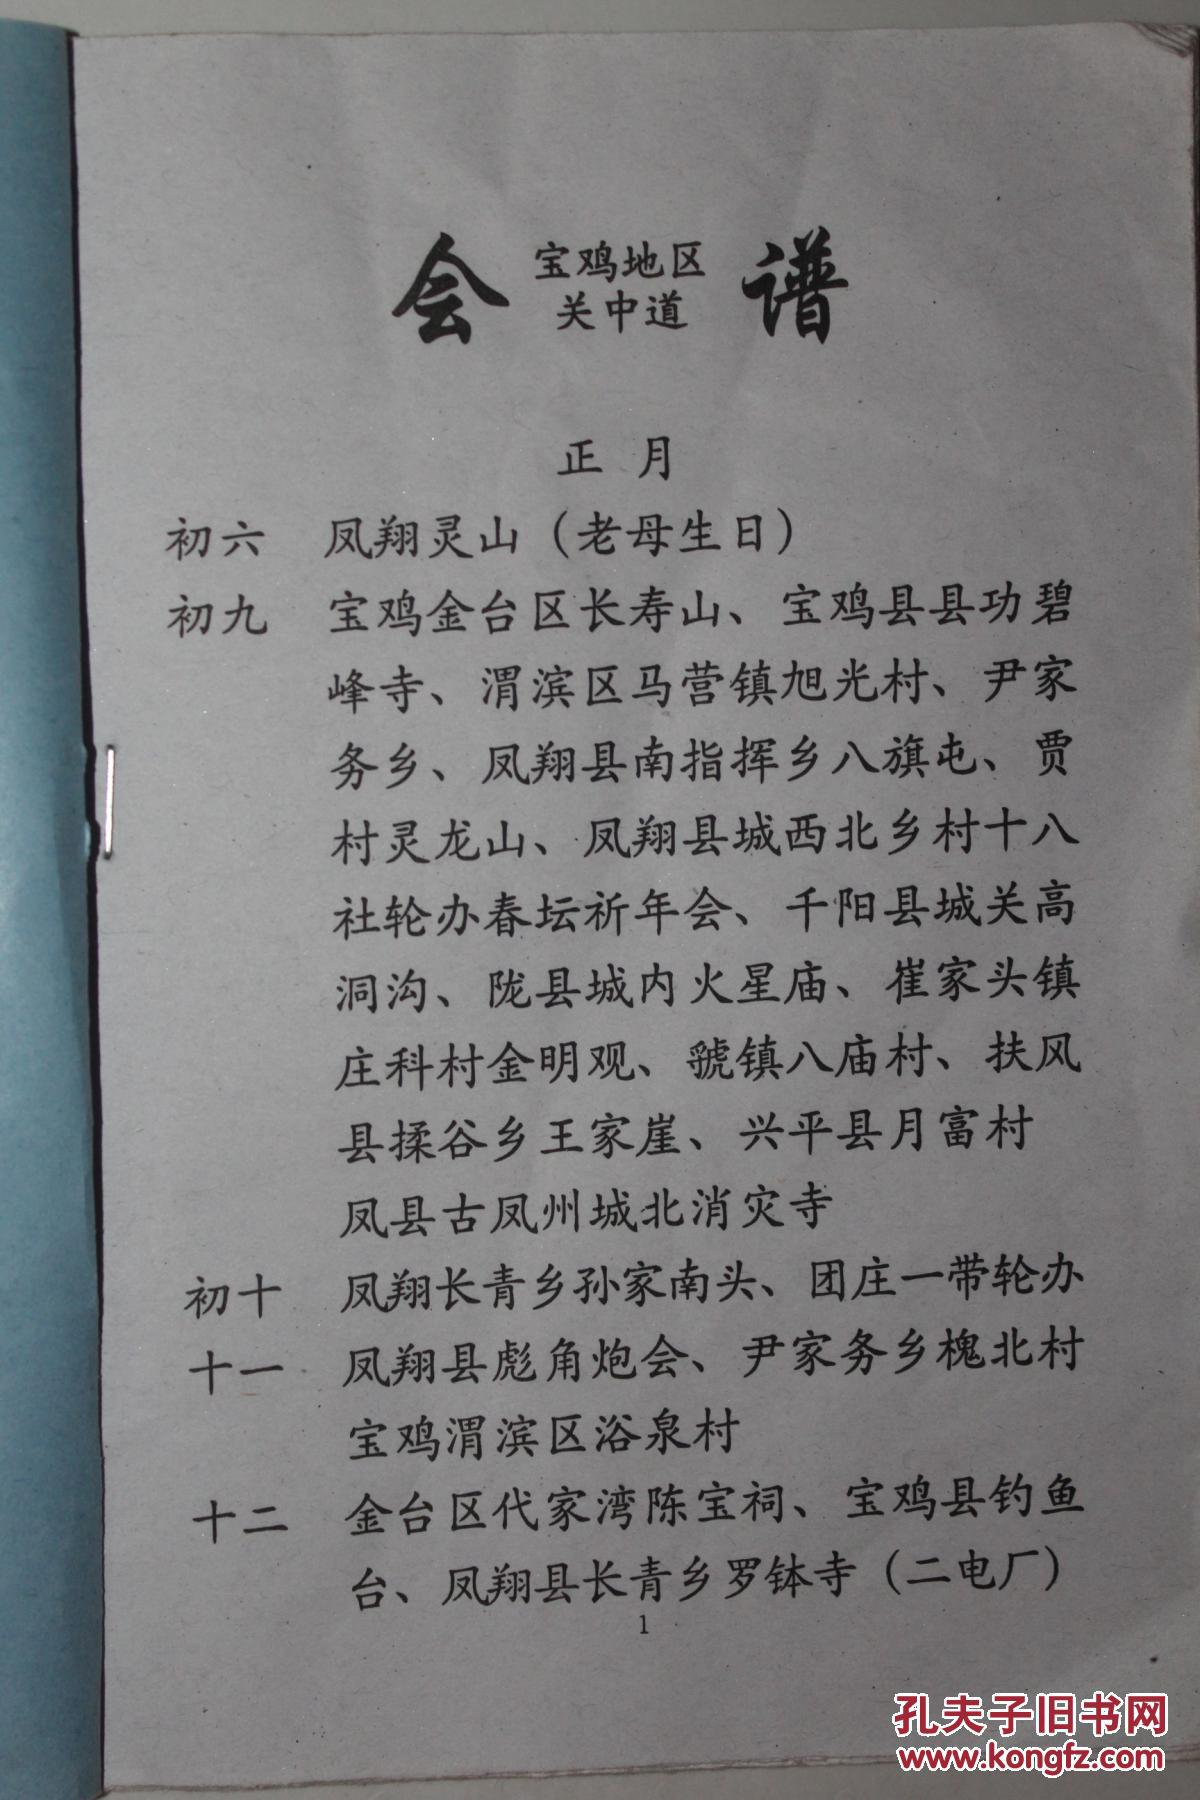 会 宝鸡地区 谱
关中道
正 月
初六 凤翔灵山（老母生日）
初九 宝鸡金台区长寿山、宝鸡县县功碧
峰寺、渭滨区马营镇旭光村、尹家
务乡、凤翔县南指挥乡八旗屯、贾
村灵龙山、凤翔县城西北乡村十八
社轮办春坛祈年会、千阳县城关高
洞沟、陇县城内火星庙、崔家头镇
庄科村金明观、虢镇八庙村、扶风
县揉谷乡王家崖、兴平县月富村
凤县古凤州城北消灾寺
初十 凤翔长青乡孙家南头、团庄一带轮办
十一 凤翔县彪角炮会、尹家务乡槐北村
宝鸡渭滨区浴泉村
十二 金台区代家湾陈宝祠、宝鸡县钓鱼
台、凤翔县长青乡罗钵寺（二电厂）
1
孔夫子旧书网
www.kongfz.com